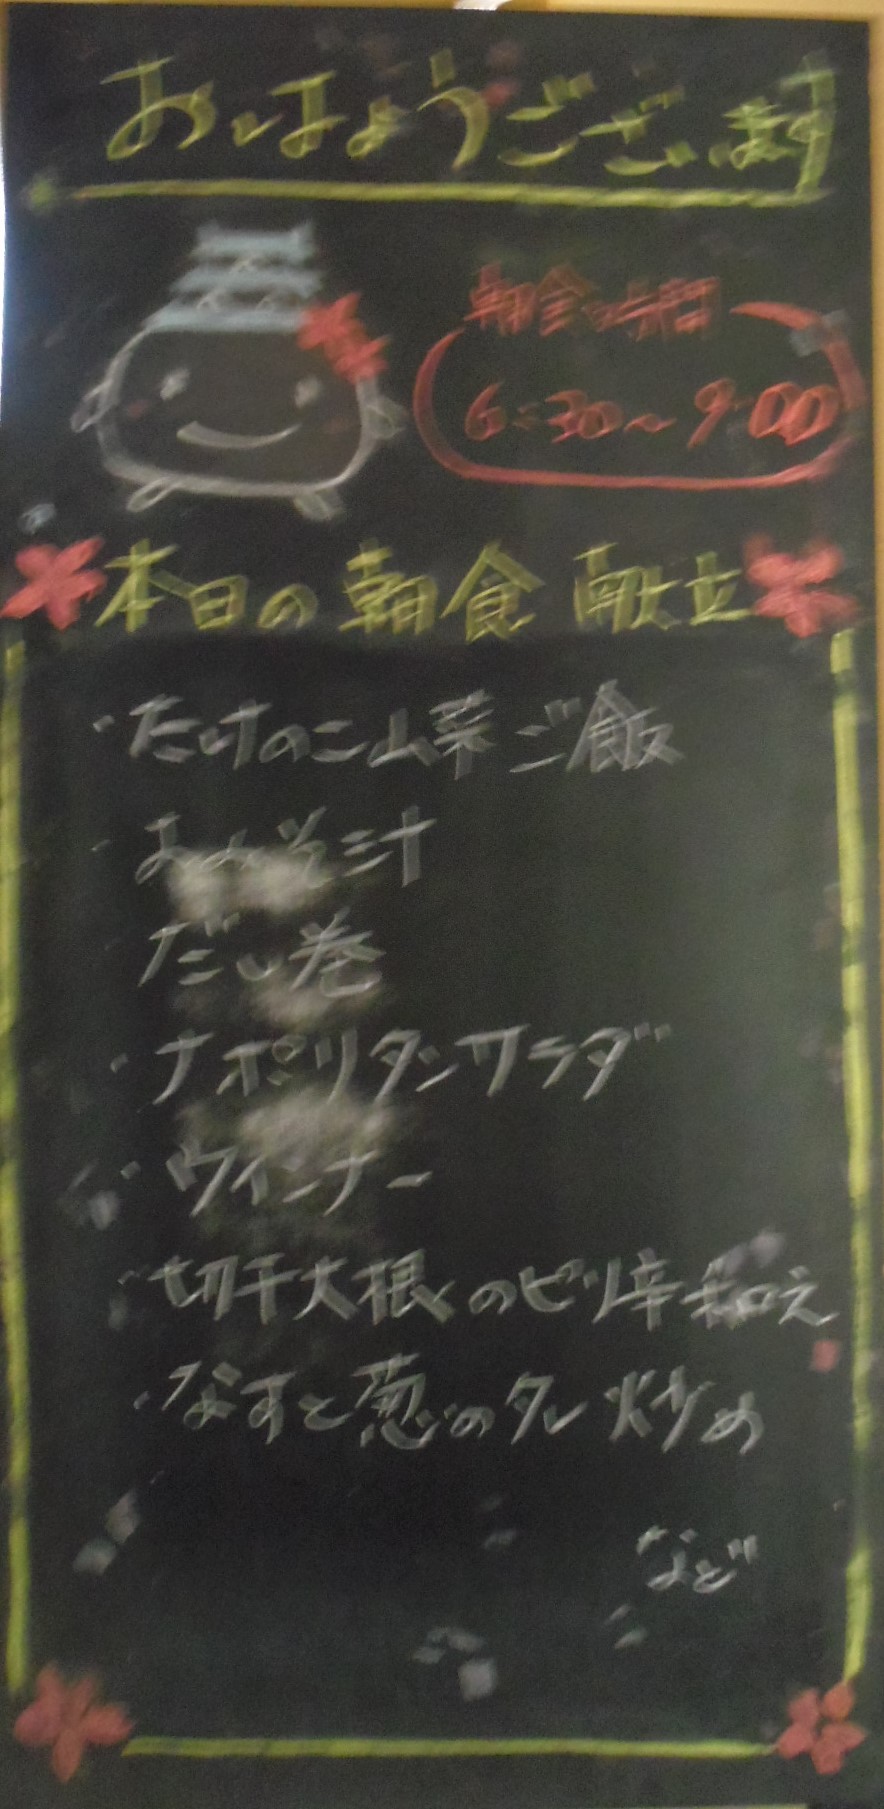 おはようございます
朝食の時間
6:30〜9:00
本日の朝食 献立
・たけのこ山菜ご飯
・おみそ汁
・だし巻
・ナポリタンサラダ
・ウインナー
・切干大根のピリ辛和え
・なすと葱のタレ炒め
など